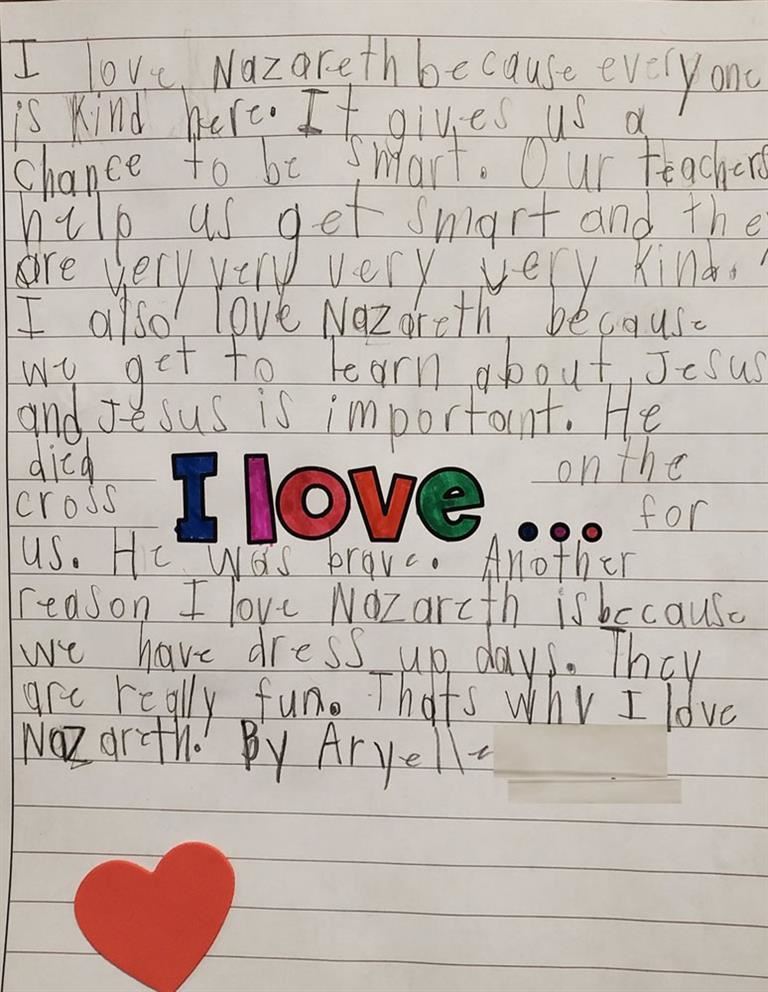 I love Nazareth because everyone
is kind here. It gives us a
chance to be smart. Our teachers
help us get smart and the
are very very very very kind.
I also love Nazareth because
we get to learn about Jesus
and Jesus is important. He
died on the
I love...
cross for
us. He was brave. Another
reason I love Nazareth is because
we have dress up days. They
are really fun. Thats why I love
Nazareth. By Aryelle